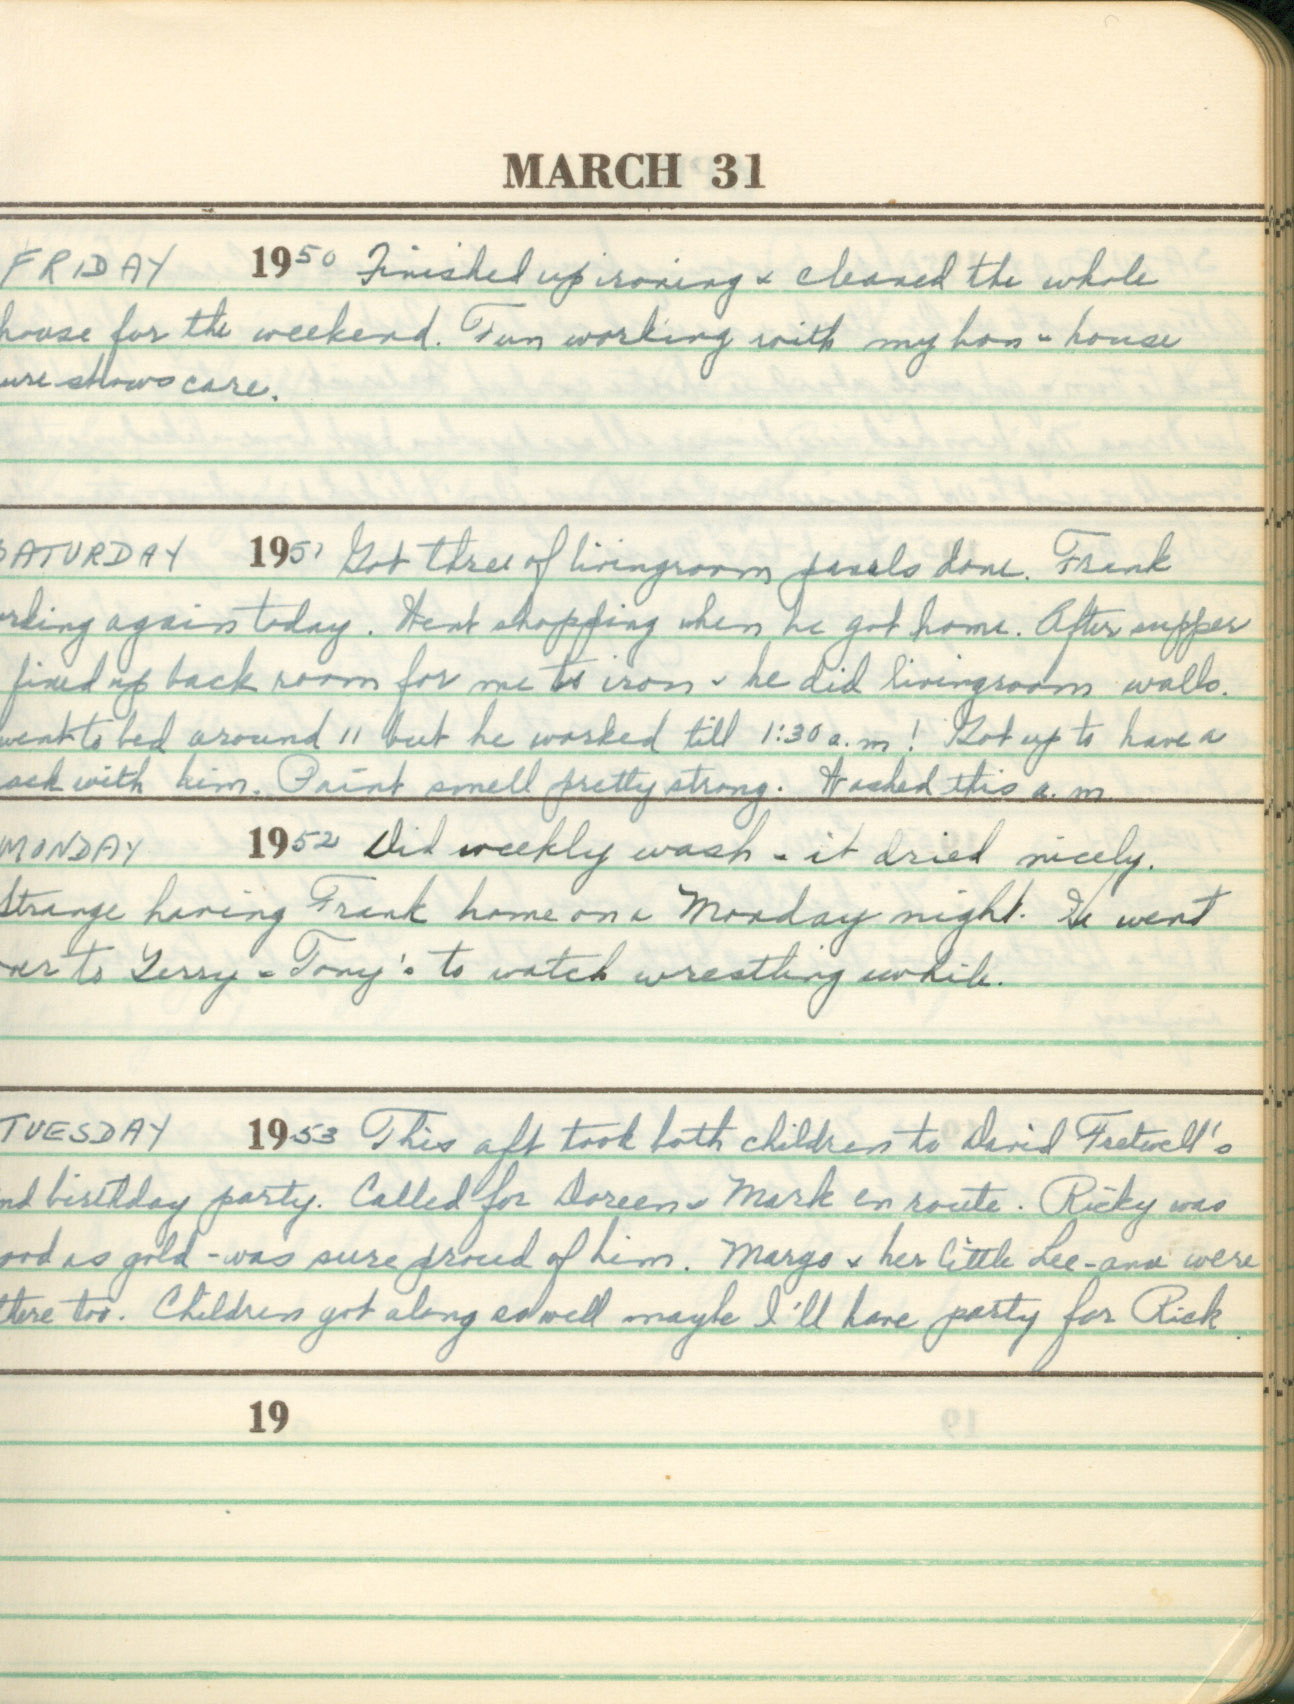 MARCH 31
FRIDAY 1950 Finished up ironing & cleaned the whole
house for the weekend. Fun working with my hon & house
ure shows care.
SATURDAY 1951 Got three of livingroom panels done. Frank
rking again today. Went shopping when he got home. After supper
fixed up back room for me to iron & he did livingroom walls.
went to bed around 11 but he worked till 1:30 a.m! Got up to have a
ack with him. Paint smell pretty strong. Washed this a.m.
MONDAY 1952 Did weekly wash - it dried nicely.
Strange having Frank home on a Monday night. He went
ver to Gerry & Tony's to watch wrestling awhile.
TUESDAY 1953 This aft took both children to David Fretwell's
nd birthday party. Called for Doreen & Mark en route. Ricky was
ood as gold - was sure proud of him. Margo & her little Lee-ann were
there too. Children got along so well maybe I'll have party for Rick.
19